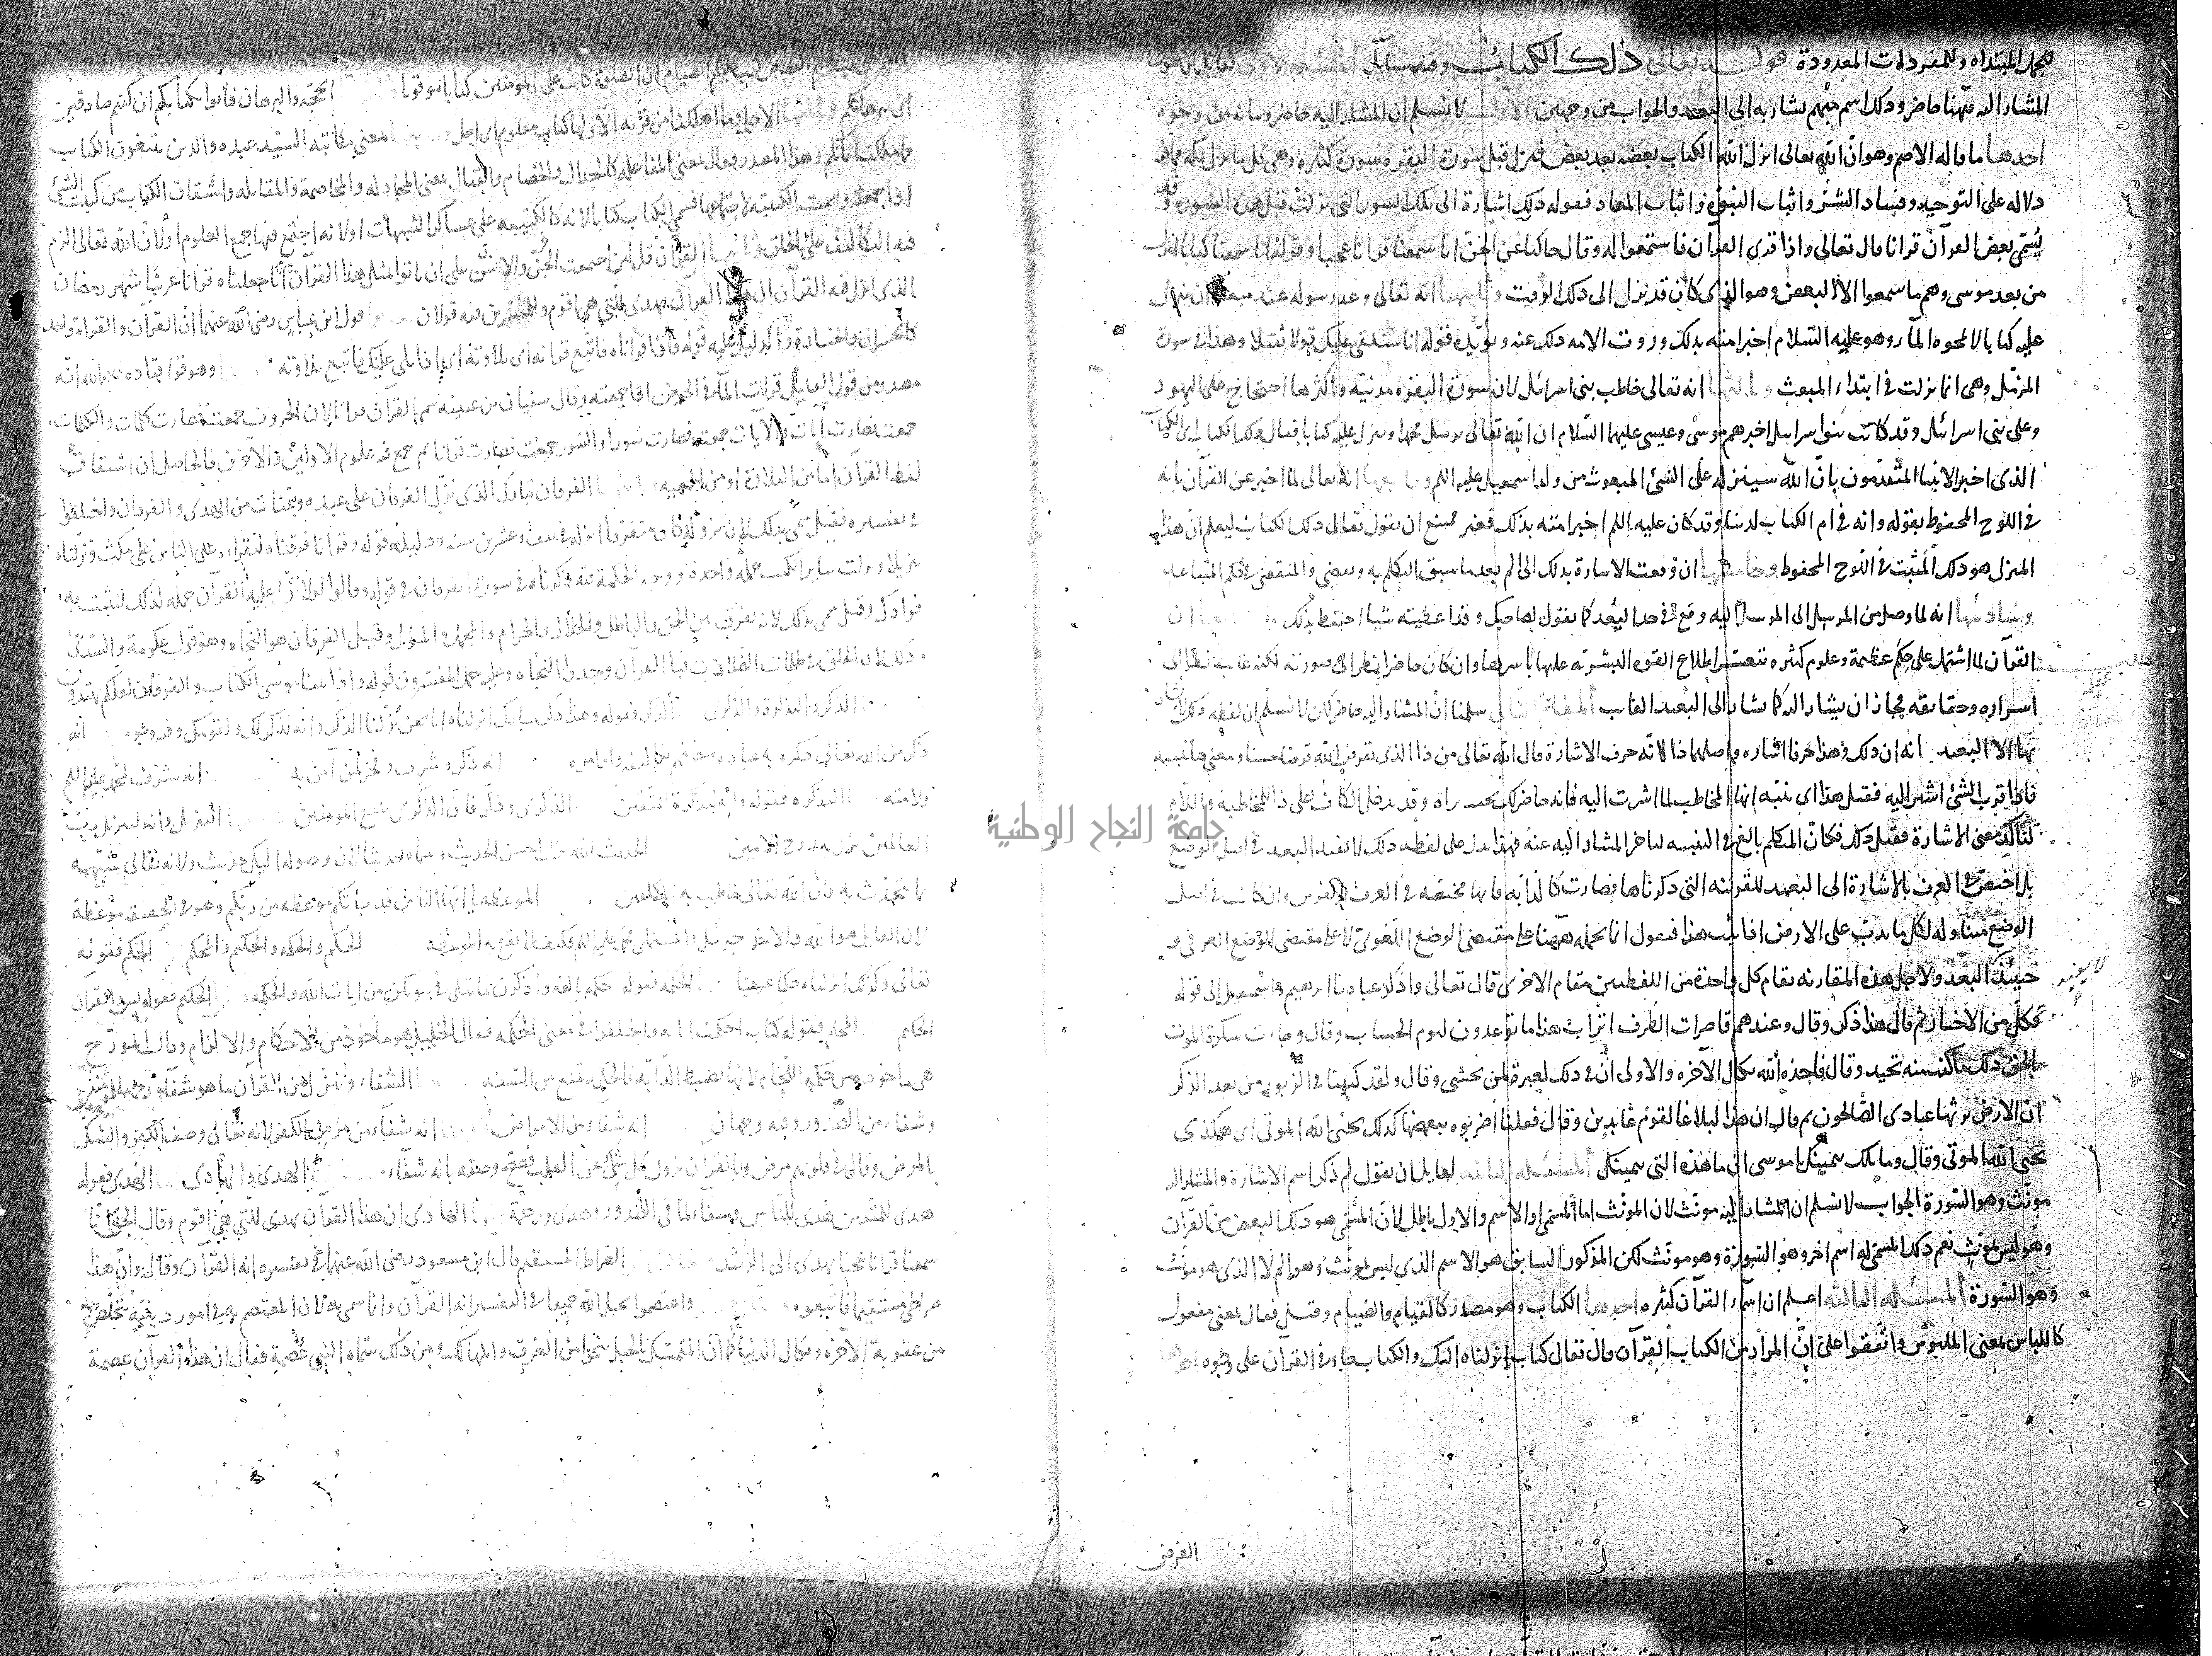 للجمل المبتداه وللمفردات المعدودة قوله تعالى ذلك الكتاب وفيه مسايل المسئلة الاولى لقايل ان يقول
المشار اليه ههنا حاضر وذلك اسم مبهم يشار به الى البعيد والجواب من وجهين الاول لا نسلم ان المشار اليه حاضر وبيانه من وجوه
احدها ما قاله الاصم وهو ان الله تعالى انزل الكتاب بعضه بعد بعض فنزل قبل سورة البقره سورة كثيرة وهي كل ما نزل بمكه مما فيه
دلاله على التوحيد وفساد الشرك واثبات النبوة واثبات المعاد فقوله ذلك اشارة الى تلك السور التي نزلت قبل هذه السورة وقد
يسمى بعض القرآن قرانا قال تعالى واذا قرى القرآن فاستمعوا له وقال حاكيا عن الجن انا سمعنا قرانا عجبا وقوله انا سمعنا كتابا انزل
من بعد موسى وهم ما سمعوا الا البعض وهو الذي كان قد نزل الى ذلك الوقت وثانيها انه تعالى وعد رسوله عند مبعثه ان ينزل
عليه كتابا لا يمحوه الماء وهو عليه السلام اخبر امته بذلك وروت الامه ذلك عنه ويؤيده قوله انا سنلقي عليك قولا ثقيلا وهذا في سورة
المزمل وهي انما نزلت في ابتداء المبعث وثالثها انه تعالى خاطب بني اسرائل لان سورة البقره مدنيه واكثرها احتجاج على اليهود
وعلى بني اسرائل وقد كانت بنوا اسرائل اخبرهم موسى وعيسى عليهما السلام ان الله تعالى يرسل محمدا وينزل عليه كتابا فقال ذلك الكتاب اي الكتاب
الذي اخبر الانبيا المتقدمون بان الله سينزله على النبي المبعوث من ولد اسمعيل عليه السلم ورابعها انه تعالى لما اخبر عن القرآن بانه
في اللوح المحفوظ بقوله وانه في ام الكتاب لدينا وقد كان عليه السلم اخبر امته بذلك فغير ممتنع ان يقول تعالى ذلك الكتاب ليعلم ان هذا
المنزل هو ذلك المثبت في اللوح المحفوظ وخامسها ان وقعت الاشارة بذلك الى الم بعد ما سبق التكلم به وتقضى والمنقضي في حكم المتباعد
وسادسها انه لما وصل من المرسل الى المرسل اليه وقع في حد البعد كما تقول لصاحبك وقد اعطيته شيا احتفظ بذلك وسابعها ان
القرآن لما اشتمل على حكم عظيمة وعلوم كثيره يتعسر اطلاع القوه البشريه عليها باسرها وان كان حاضرا نظرا الى صورته لكنه غايب نظرا الى
اسراره وحقايقه فجاز ان يشار اليه كما يشار الى البعيد الغايب المقام الثاني سلمنا ان المشار اليه حاضر لكن لا نسلم ان لفظه ذلك لا يشار
بها الا البعيد انه ان ذلك وهذا حرفا اشاره واصلهما ذا لانه حرف الاشارة قال الله تعالى من ذا الذي يقرض الله قرضا حسنا ومعنى ها تنبيه
فاذا قرب الشئ اشير اليه فقيل هذا اي تنبه ايها المخاطب لما اشرت اليه فانه حاضر لك بحيث تراه وقد يدخل الكاف على ذا للمخاطبة واللام
لتاكيد معنى الاشارة فقيل ذلك فكان المتكلم بالغ في التنبيه لتاخر المشار اليه عنه فهذا يدل على ان لفظه ذلك لا يفيد البعد في اصل الوضع
بل اختص في العرف بالاشارة الى البعيد للقرينه التي ذكرناها فصارت كالدابه فانها مختصه في العرف بالفرس وان كانت في اصل
الوضع متناوله لكل ما يدب على الارض اذا ثبت هذا فنقول انا نحمله ههنا على مقتضى الوضع اللغوى لا على مقتضى الوضع العرفي و
حينئذ لا يفيد البعد ولاجل هذه المقارنه يقام كل واحدة من اللفظين مقام الاخرى قال تعالى واذكر عبادنا ابرهيم واسمعيل الى قوله
وكل من الاخيار ثم قال هذا ذكر وقال وعندهم قاصرات الطرف اتراب هذا ما توعدون ليوم الحساب وقال وجاءت سكرة الموت
بالحق ذلك ما كنت منه تحيد وقال فاخذه الله نكال الآخره والاولى ان في ذلك لعبرة لمن يخشى وقال ولقد كتبنا في الزبور من بعد الذكر
ان الارض يرثها عبادى الصالحون ثم قال ان هذا لبلاغا لقوم عابدين وقال فقلنا اضربوه ببعضها كذلك يحيى الله الموتى اي هكذى
يحيى الله الموتى وقال وما تلك بيمينك يا موسى اي ما هذه التي بيمينك المسئله الثانيه لقايل ان يقول لم ذكر اسم الاشارة والمشار اليه
مونث وهو السورة الجواب لا نسلم ان المشار اليه مونث لان المونث اما المسمى او الاسم والاول باطل لان المسمى هو ذلك البعض من القرآن
وهو ليس بمونث نعم ذلك المسمى له اسم اخر وهو السورة وهو مونث لكن المذكور السابق هو الاسم الذي ليس بمونث وهو الم لا الذي هو مونث
وهو السورة المسئله الثالثه اعلم ان اسماء القرآن كثيره احدها الكتاب وهو مصدر كالقيام والصيام وقيل فعال بمعنى مفعول
كاللباس بمعنى الملبوس واتفقوا على ان المراد من الكتاب القرآن قال تعالى كتاب انزلناه اليك والكتاب جاء في القرآن على وجوه احدها
الفرض
الفرض كتب عليكم القصاص كتب عليكم الصيام ان الصلوة كانت على المومنين كتابا موقوتا الحجه والبرهان فاتوا بكتابكم ان كنتم صادقين
اي ببرهانكم الاجل وما اهلكنا من قرية الا ولها كتاب معلوم اي اجل المعنى مكاتبه السيد عبده والذين يبتغون الكتاب
مما ملكت ايمانكم وهذا المصدر فعال بمعنى المفاعله كالجدال والخصام والقتال بمعنى المجادله والمخاصمة والمقاتله واشتقاق الكتاب من كتبت الشئ
اذا جمعته وسميت الكتيبه لاجتماعها فسمى الكتاب كتابا لانه كالكتيبه على عساكر الشبهات او لانه اجتمع فيها جمع العلوم او لان الله تعالى الزم
فيه التكاليف على الخلق وثانيها القرآن قل لين اجتمعت الجن والانس على ان ياتوا بمثل هذا القرآن انا جعلناه قرانا عربيا شهر رمضان
الذي انزل فيه القرآن ان هذا القرآن يهدى للتي هي اقوم وللمفسرين فيه قولان قول ابن عباس رضي الله عنهما ان القرآن والقراة واحد
كالخسران والخسارة والدليل عليه قوله فاذا قراناه فاتبع قرانه اي تلاوته اي اذا تلى عليك فاتبع تلاوته وهو قول قتاده انه
مصدر من قول القايل قرات الماء في الحوض اذا جمعته وقال سفيان بن عيينه سمي القرآن قرانا لان الحروف جمعت فصارت كلمات والكلمات
جمعت فصارت آيات والآيات جمعت فصارت سورا والسور جمعت فصارت قرانا ثم جمع فيه علوم الاولين والآخرين فالحاصل ان اشتقاق
لفظ القرآن اما من التلاوة او من الجمعيه الفرقان تبارك الذي نزل الفرقان على عبده وبينات من الهدى والفرقان واختلفوا
في تفسيره فقيل سمي بذلك لان نزوله كان متفرقا انزله في نيف وعشرين سنه ودليله قوله وقرانا فرقناه لتقراه على الناس على مكث ونزلناه
تنزيلا ونزلت ساير الكتب جمله واحدة ووجه الحكمة فيه ذكرناه في سورة الفرقان في قوله وقالوا لولا نزل عليه القرآن جمله كذلك لنثبت به
فوادك وقيل سمي بذلك لانه يفرق بين الحق والباطل والحلال والحرام والمجمل والمؤول وقيل الفرقان هو النجاه وهو قول عكرمة والسدي
وذلك لان الخلق في ظلمات الضلالات فبا القرآن وجدوا النجاه وعليه حمل المفسرون قوله واذ اتينا موسى الكتاب والفرقان لعلكم تهتدون
الذكر والتذكرة والذكرى الذكر فقوله وهذا ذكر مبارك انزلناه انا نحن نزلنا الذكر وانه لذكر لك ولقومك وفيه وجوه انه
ذكر من الله تعالى ذكره به عباده انه ذكر وشرف وفخر لمن آمن به انه شرف لمحمد عليه السلم
ولامته التذكره فقوله وانه لتذكرة للمتقين الذكرى وذكر فان الذكرى تنفع المومنين التنزيل وانه لتنزيل رب
العالمين نزل به الروح الامين الحديث الله نزل احسن الحديث
بما يتحدث به فان الله تعالى خاطب به المكلفين الموعظه يا ايها الناس قد جاتكم موعظه من ربكم وهو في الحقيقه موعظة
لان القايل هو الله والاخذ جبرئل والمستملى محمد عليه السلم فكيف لا يقع به الموعظه الحكم والحكمه والحكيم والمحكم الحكم فقوله
تعالى وكذلك انزلناه حكما عربيا الحكمه فقوله حكمه بالغه واذكرن ما يتلى في بيوتكن من ايات الله والحكمه الحكيم فقوله يس والقرآن
الحكيم المحكم فقوله كتاب احكمت اياته واختلفوا في معنى الحكمه فقال الخليل هو ماخوذ من الاحكام والالزام وقال المورج
هي ماخوذ من حكمه اللجام لانها تضبط الدابه فالحكمه تمنع من السفه الشفاء وننزل من القرآن ما هو شفآء ورحمه للمومنين
وشفاء من الصدور وفيه وجهان انه شفاء من الامراض انه شفآء من مرض الكفر لانه تعالى وصف الكفر والشك
بالمرض وقال في قلوبهم مرض وبالقرآن يزول كل شك عن القلب فصح وصفه بانه شفآء الهدى والهادى الهدى فقوله
هدى للمتقين هدى للناس وشفآء لما في الصدور وهدى ورحمة الهادى ان هذا القرآن يهدى للتي هي اقوم وقال الجن انا
سمعنا قرانا عجبا يهدى الى الرشد الصراط المستقيم قال ابن مسعود رضي الله عنه في تفسيره انه القرآن وقال وان هذا
صراطى مستقيما فاتبعوه واعتصموا بحبل الله جميعا في التفسير انه القرآن وانما سمي به لان المعتصم به في امور دينه يتخلص
من عقوبة الآخرة ونكال الدنيا كما ان المتمسك بالحبل ينجو من الغرق والمهالك ومن ذلك سماه النبي عصمة فقال ان هذا القرآن عصمة
جامعة النجاح الوطنية